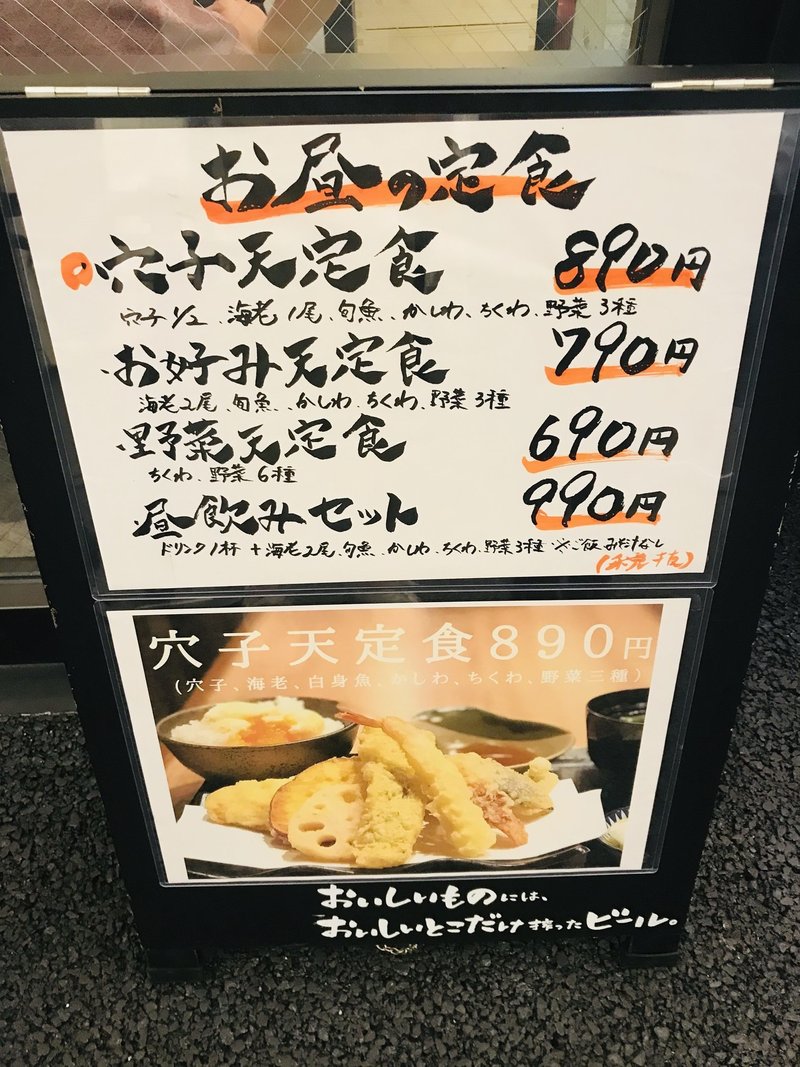 お昼の定食
穴子天定食 890円
穴子1/2、海老1尾、旬魚、かしわ、ちくわ、野菜3種
お好み天定食 790円
海老2尾、旬魚、かしわ、ちくわ、野菜3種
野菜天定食 690円
ちくわ、野菜6種
昼飲みセット 990円
ドリンク1杯+海老2尾、旬魚、かしわ、ちくわ、野菜3種 ※ご飯みそ汁なし
(税抜)
穴子天定食890円
(穴子、海老、白身魚、かしわ、ちくわ、野菜三種)
おいしいものには、
おいしいとこだけ搾ったビール。